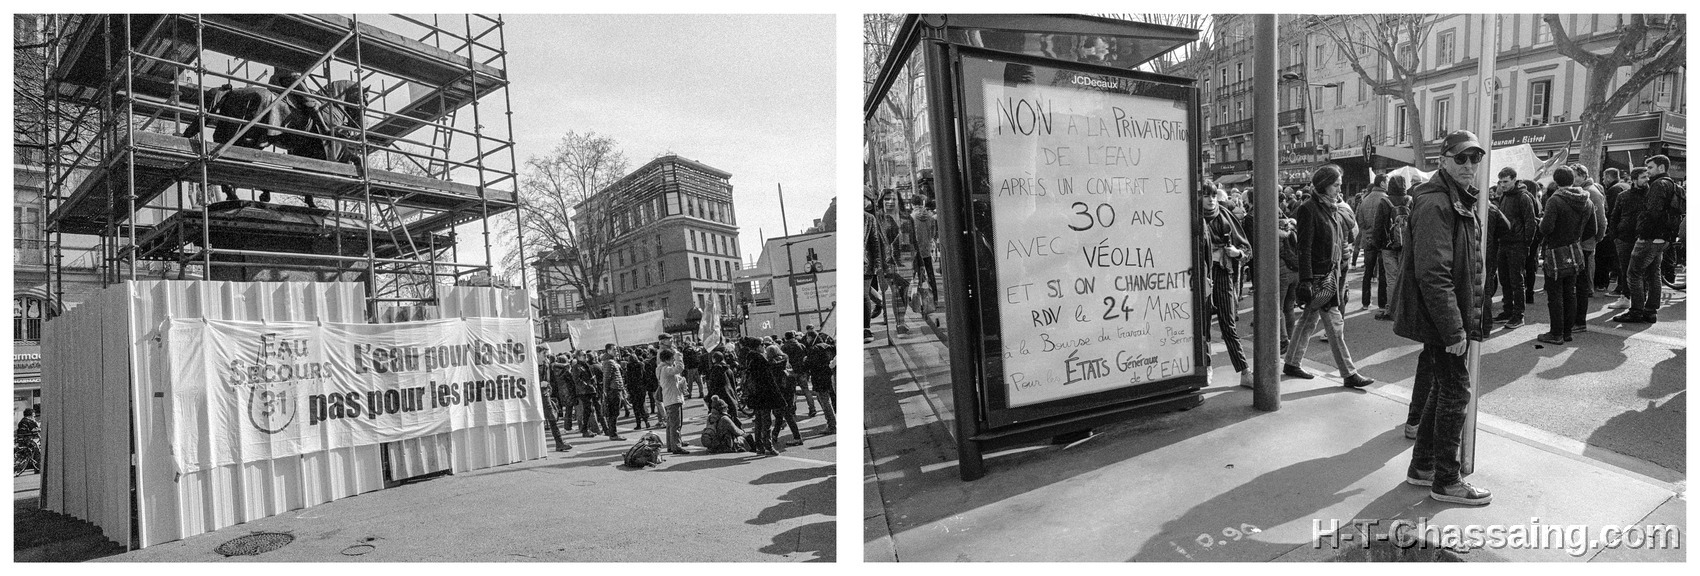 EAU
SECOURS
31
L'eau pour la vie
pas pour les profits
JCDecaux
NON À LA PRIVATISATION
DE L'EAU
APRÈS UN CONTRAT DE
30 ANS
AVEC VÉOLIA
ET SI ON CHANGEAIT?
RDV le 24 MARS
à la Bourse du travail Place
St Sernin
Pour les ÉTATS Généraux
de l'EAU
Restaurant - Bistrot
H-T-Chassaing.com